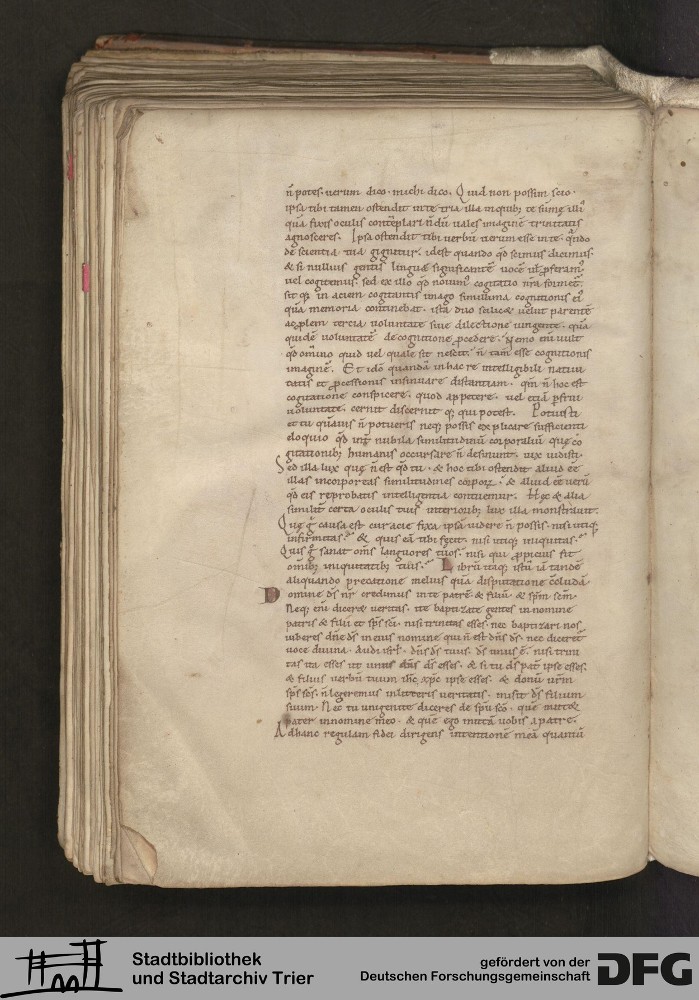 n̄ potes. uerum dico. michi dico. Quid non possim scio.
ipsa tibi tamen ostendit in te tria illa in quibꝫ te sūmę illiꝰ
quā fixis oculis contēplari n̄dū uales imaginē trinitatis
agnosceres. Ipsa ostendit tibi uerbū uerum esse in te. qn̄do
de scientia tua gignitur. idest quando qd̄ scimus dicimus.
& si nullius gentis linguę significantē uocē ul̄ p̄feramꝰ
uel cogitemus. sed ex illo qd̄ nouimꝰ cogitatio nr̄a formet̄.
sit qꝫ in aciem cogitantis imago simillima cognitionis eiꝰ
quā memoria continebat. ista duo scilicæ uelut parentē
ac plem tercia uoluntate siue dilectione iungente. quā
quidē uoluntatē de cogitione p̄cedere. nemo enī uult
qd̄ om̄ino quid uel quale sit nescit. n̄ tam̄ esse cognitionis
imaginē. Et idō quandā in hac re intelligibili natiui
tatis et p̄cessionis insinuare distantiam. qm̄ n̄ hoc est
cogitatione conspicere. quod appetere. uel etiā p̄frui
uoluntate. cernit discernit qꝫ qui potest. Potuisti
et tu quāuis n̄ potueris neqꝫ possis explicare sufficienti
eloquio qd̄ inť nubila similitudinū corporaliū. quę co
gitationibꝫ humanis occursare n̄ desinunt. uix uidisti.
Sed illa lux quę n̄ est qd̄ tu. & hoc tibi ostendit aliud ēē
illas incorporeas similitudines corporꝝ. & aliud ēē uerū
qd̄ eis reprobatis intelligentia contuemur. Hęc & alia
similit̄ certa oculis tuis interioribꝫ lux illa monstrauit.
Quę g̊ causa est cur acie fixa ipsā uidere n̄ possis. nisi utiqꝫ
infirmitas. & quis eā tibi fecit. nisi utiqꝫ iniquitas.
Quis g̊ sanat om̄s languores tuos. nisi qui p̄picius fit
om̄ibꝫ iniquitatibꝫ tuis. Librū itaqꝫ istū iā tandē
aliquando precatione melius quā disputatione c̄cludā
Domine ds̄ nr̄ credimus in te patrē. & filiū. & sp̄m sc̄m.
Neqꝫ enī diceræ ueritas. ite baptizate gentes in nomine
patris & filii et sp̄s sc̄i. nisi trinitas esses. nec baptizari nos
iuberes dn̄e ds̄ in eius nomine qui n̄ est dn̄s ds̄. nec diceret̄
uoce diuina. Audi isrl̄. dn̄s ds̄ tuus. ds̄ unus ē. nisi trini
tas ita esses ut unus dn̄s ds̄ esses. & si tu ds̄ pať ipse esses.
& filius uerbū tuum ih̄c xp̄c ipse esses. & donū ur̄m
sp̄s sc̄s. n̄ legeremus in litteris ueritatis. misit ds̄ filium
suum. Nec tu unigenite diceres de sp̄u sc̄o. quē mittæ
pater in nomine meo. & quē ego mittā uobis a patre.
Ad hanc regulam fidei dirigens intentionē meā quantū
Stadtbibliothek
und Stadtarchiv Trier
gefördert von der
Deutschen Forschungsgemeinschaft
DFG